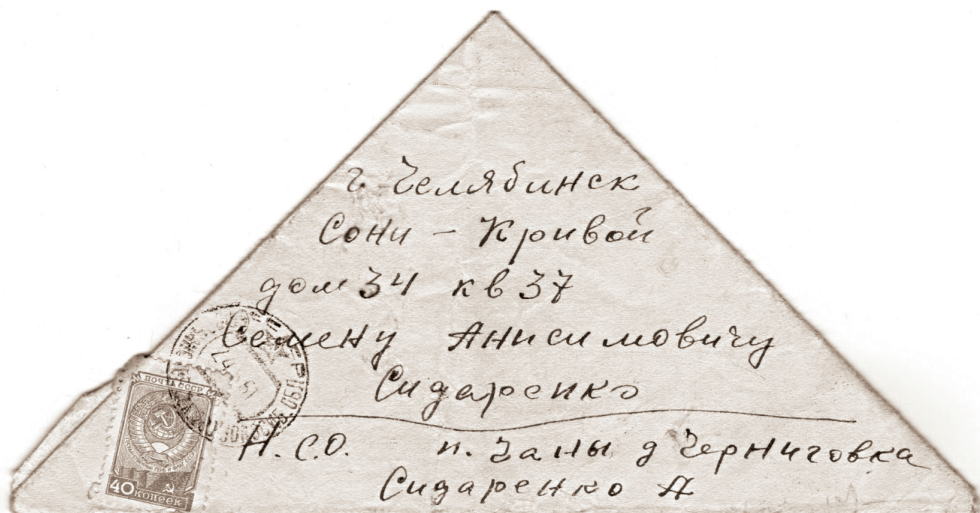 г. Челябинск
Сони - Кривой
дом 34 кв 37
Семену Анисимовичу
Сидаренко
Н.С.О. п. Чаны д Черниговка
Сидаренко А
ПОЧТА СССР
40 КОПЕЕК